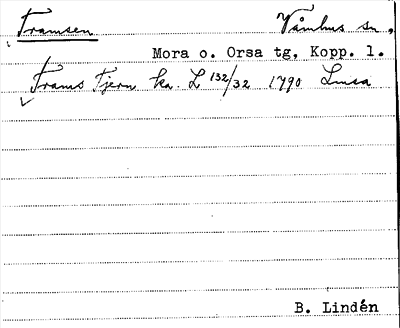 Framsen Våmhus sn.
Mora o. Orsa tg, Kopp. l.
Frams Tjern ka. L 132/32 1790 Lmsa
B. Lindén